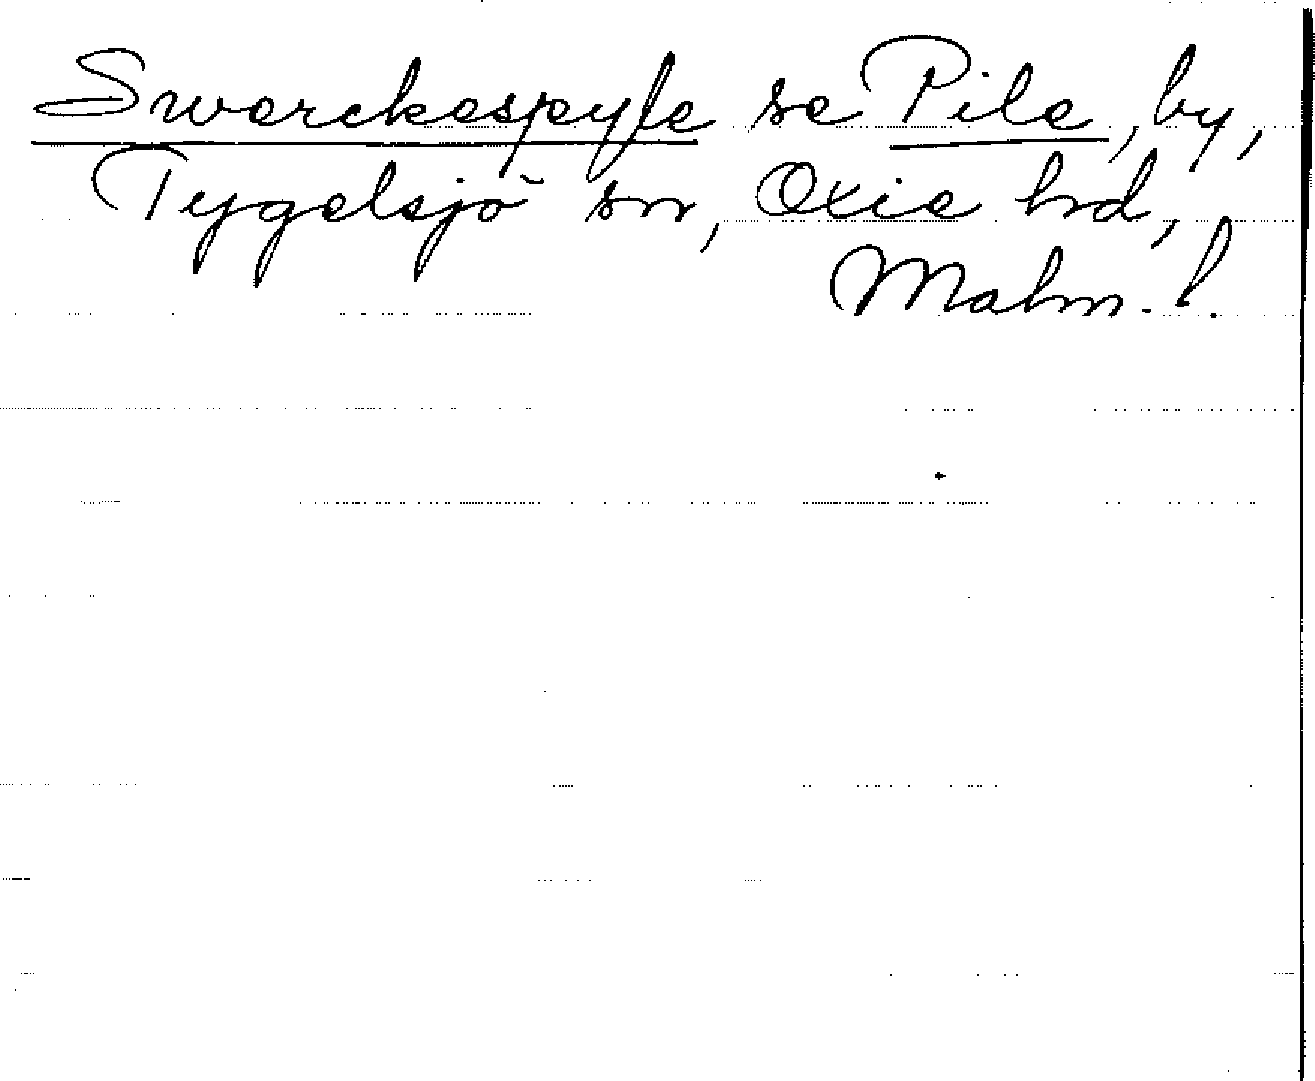 Swerckespyle se Pile, by,
Tygelsjö sn, Oxie hd,
Malm. l.